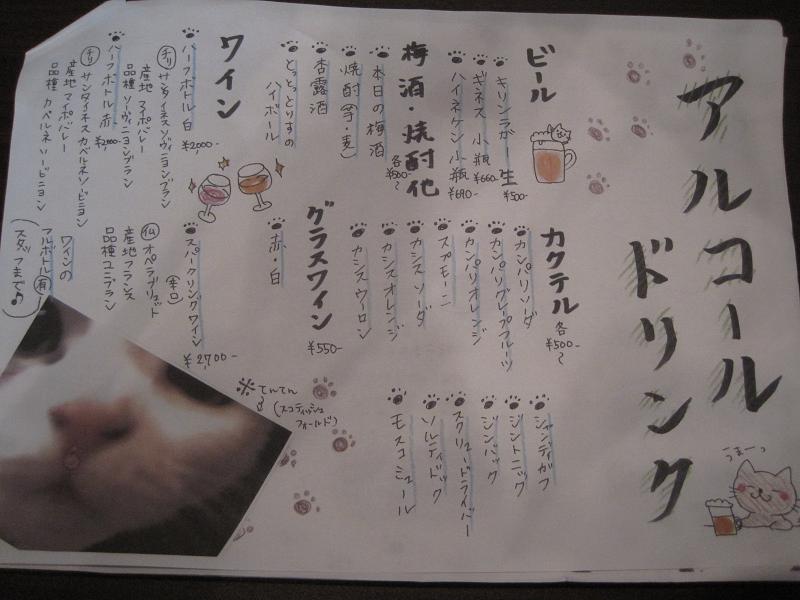 アルコール
ドリンク
うまーっ
ビール
キリンラガー 生
¥500-
ギネス 小瓶
¥660-
ハイネケン 小瓶
¥690-
梅酒・焼酎他
各¥500~
本日の梅酒
焼酎(芋・麦)
杏露酒
とっとっとりすの
ハイボール
ワイン
ハーフボトル 白
¥2,000-
チリ サンタイネス ソヴィニヨンブラン
産地 マイポバレー
品種 ソーヴィニョンブラン
ハーフボトル 赤
¥2,000-
チリ サンタイネス カベルネソーヴィニヨン
産地 マイポバレー
品種 カベルネソーヴィニヨン
カクテル
各¥500-~
カンパリソーダ
カンパリグレープフルーツ
カンパリオレンジ
スプモーニ
カシスソーダ
カシスオレンジ
カシスウーロン
グラスワイン
¥550-
赤・白
スパークリングワイン
(辛口)
¥2,700-
仏 オペラブリュット
産地 フランス
品種 ユニブラン
ワインの
フルボトル有
(スタッフまで♪)
シャンディガフ
ジントニック
ジンバック
スクリュードライバー
ソルティドッグ
モスコミュール
※てんてん♂
(スコティッシュ
フォールド)